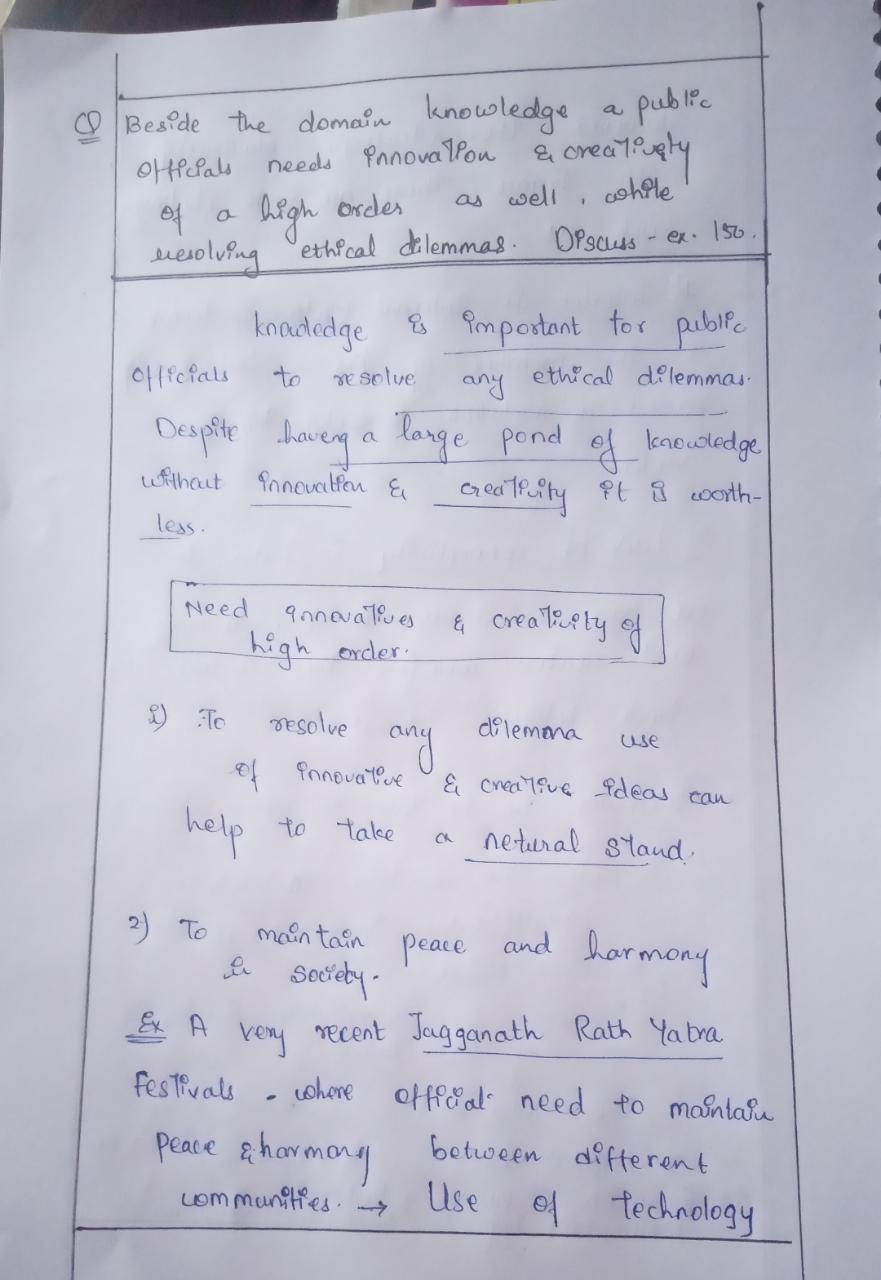 Q Beside the domain knowledge a public
officials needs innovation & creativety
of a high order as well, while
resolving ethical dilemmas. Discuss - ex. 150.
knowledge is important for public
officials to resolve any ethical dilemmas.
Despite haveng a large pond of knowledge
without innovation & creativity it is worth-
less.
Need innovatives & creativity of
high order.
1) To resolve any dilemma use
of innovative & creative ideas can
help to take a netural stand.
2) To maintain peace and harmony
in society.
Ex A very recent Jagganath Rath Yatra
Festivals - where official need to maintain
peace & harmony between different
communities. → Use of technology